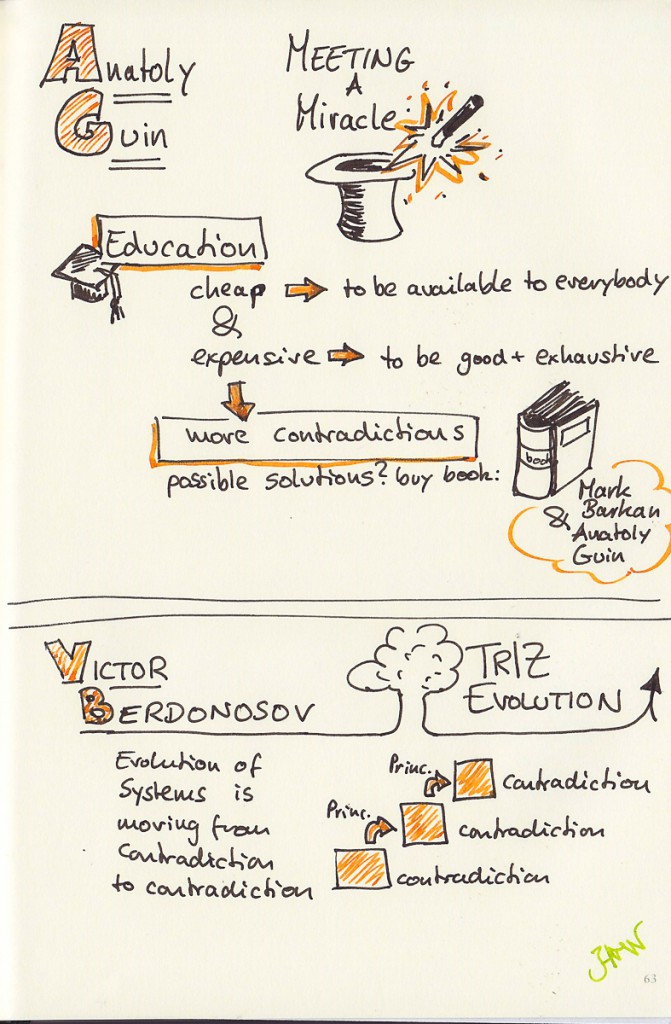 Anatoly
Guin
MEETING
A
Miracle
Education
cheap → to be available to everybody
&
expensive → to be good + exhaustive
more contradictions
possible solutions? buy book:
book
Mark
& Barkan
Anatoly
Guin
VICTOR
BERDONOSOV
TRIZ
EVOLUTION
Evolution of
Systems is
moving from
contradiction
to contradiction
Princ.
contradiction
Princ.
contradiction
contradiction
63